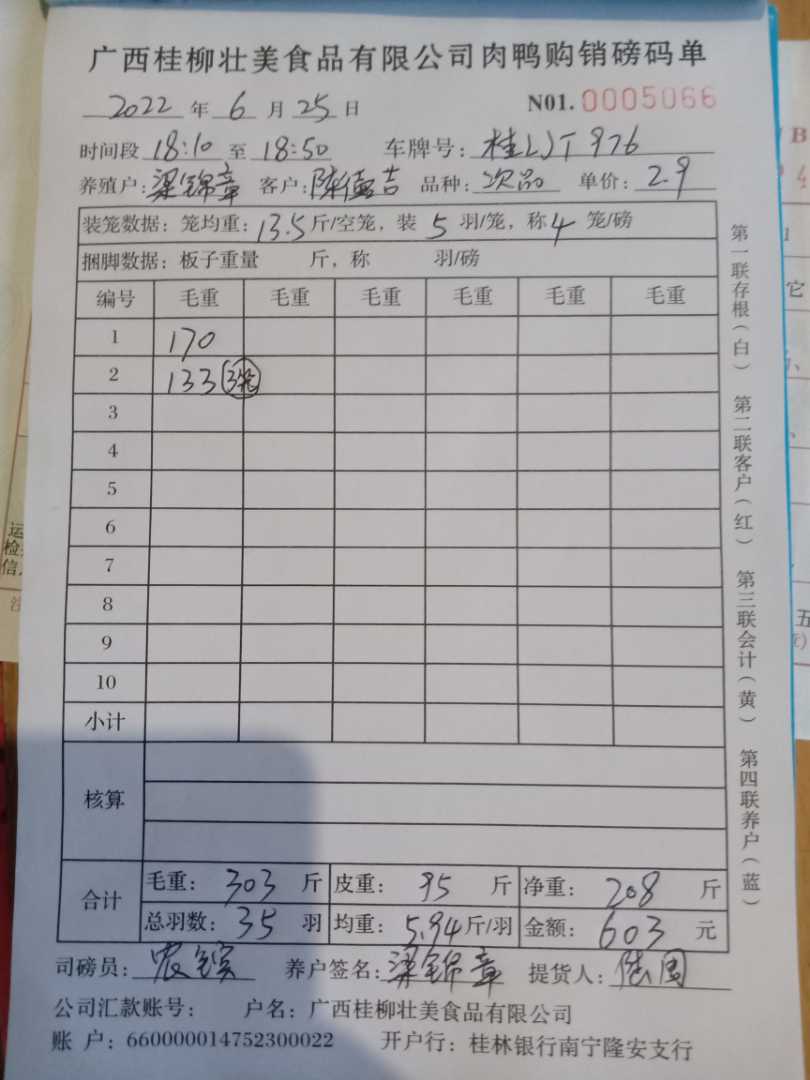 广西桂柳壮美食品有限公司肉鸭购销磅码单
2022 年 6 月 25 日 N01. 0005066
时间段 18:10 至 18:50 车牌号: 桂 976
养殖户: 梁锦章 客户: 陈德吉 品种: 次品 单价: 2.9
装笼数据: 笼均重: 13.5 斤/空笼, 装 5 羽/笼, 称 4 笼/磅
捆脚数据: 板子重量 斤, 称 羽/磅
编号 毛重 毛重 毛重 毛重 毛重 毛重
1 170
2 133 3笼
3
4
5
6
7
8
9
10
小计
核算
合计 毛重: 303 斤 皮重: 95 斤 净重: 208 斤
总羽数: 35 羽 均重: 5.94 斤/羽 金额: 603 元
司磅员: 农 养户签名: 梁锦章 提货人:
公司汇款账号: 户名: 广西桂柳壮美食品有限公司
账 户: 660000014752300022 开户行: 桂林银行南宁隆安支行
第一联存根(白) 第二联客户(红) 第三联会计(黄) 第四联养户(蓝)